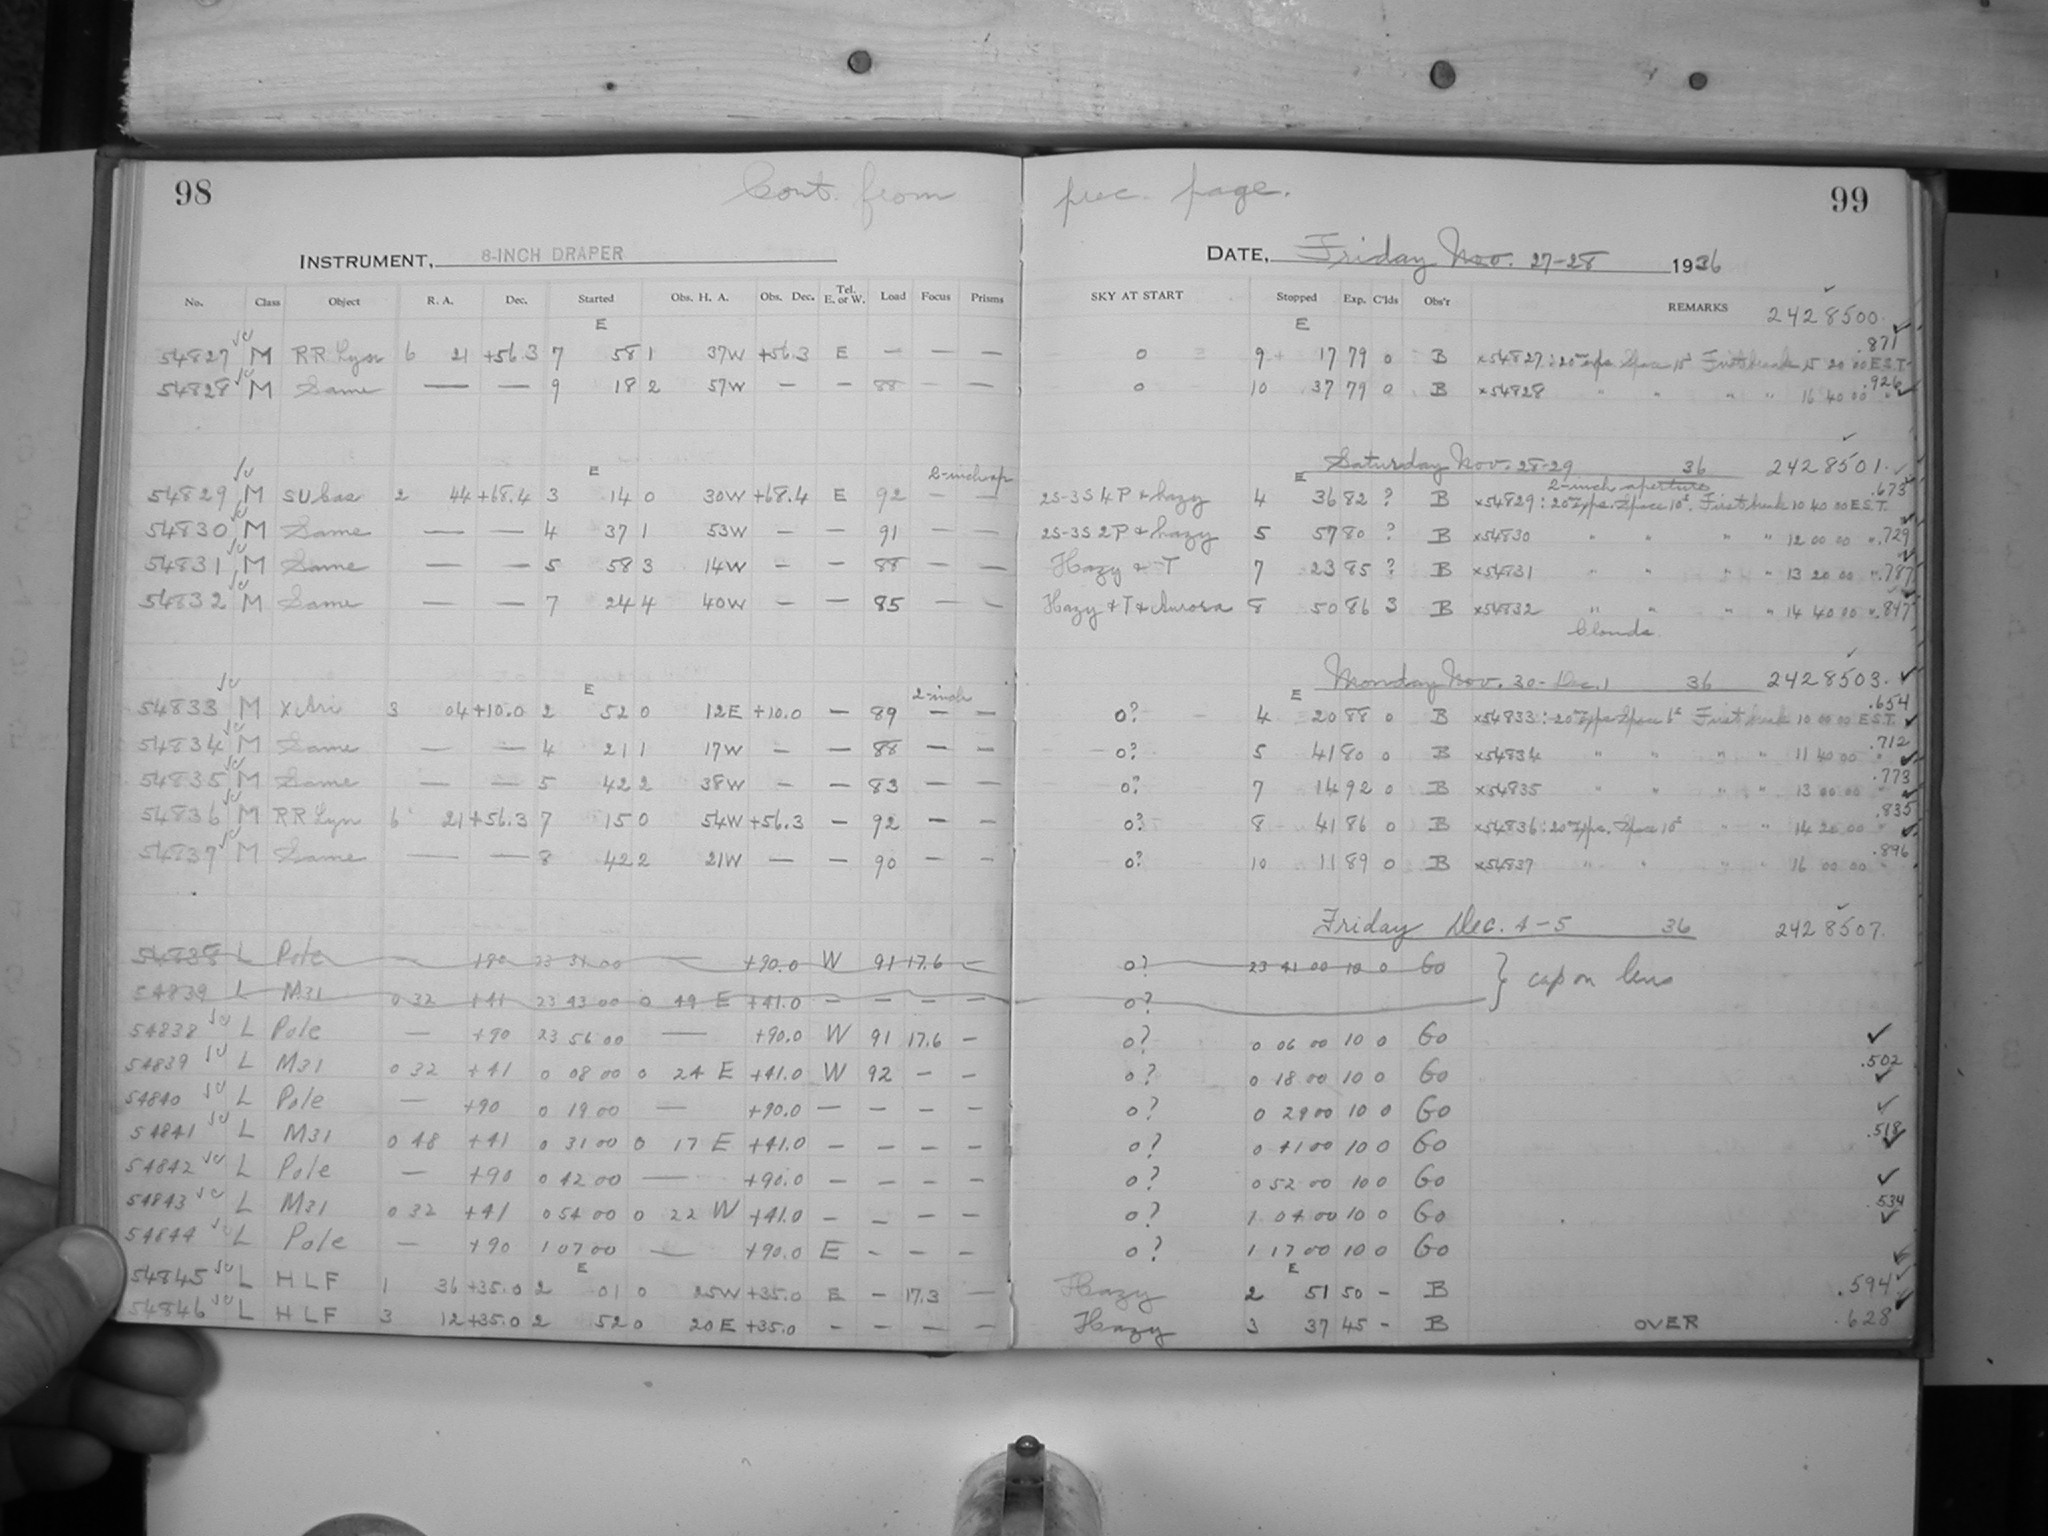 98 Cont. from prec. page. 99
INSTRUMENT, 8-INCH DRAPER DATE, Friday Nov. 27-28 1936
No. Class Object R. A. Dec. Started Obs. H. A. Obs. Dec. Tel. E. or W. Load Focus Prisms SKY AT START Stopped Exp. C'lds Obs'r REMARKS 2428500.
E E
54827 M RR Lyn 6 21 +56.3 7 58 1 37W +56.3 E — — — 0 9 17 79 0 B x54827: 20 Exps. Space 15s First break 15 20 00 E.S.T. .871
54828 M Same — — 9 18 2 57W — — 88 — — 0 10 37 79 0 B x54828 " " " " 16 40 00 " .926
Saturday Nov. 28-29 36 2428501.
E 2-inch ap E 2-inch aperture
54829 M SU Cas 2 44 +68.4 3 14 0 30W +68.4 E 92 — — 2S-3S 4P & hazy 4 36 82 ? B x54829: 20 Exps. Space 10s. First break 10 40 00 E.S.T. .673
54830 M Same — — 4 37 1 53W — — 91 — — 2S-3S 2P & hazy 5 57 80 ? B x54830 " " " " 12 00 00 " .729
54831 M Same — — 5 58 3 14W — — 88 — — Hazy & T 7 23 85 ? B x54831 " " " " 13 20 00 " .787
54832 M Same — — 7 24 4 40W — — 85 — — Hazy & T & Aurora 8 50 86 3 B x54832 " " " " 14 40 00 " .847
Clouds.
Monday Nov. 30 - Dec. 1 36 2428503.
E 2-inch E
54833 M X Ari 3 04 +10.0 2 52 0 12E +10.0 — 89 — — 0? 4 20 88 0 B x54833: 20 Exps. Space 6s First break 10 00 00 E.S.T. .654
54834 M Same — — 4 21 1 17W — — 88 — — 0? 5 41 80 0 B x54834 " " " " 11 40 00 " .712
54835 M Same — — 5 42 2 38W — — 83 — — 0? 7 14 92 0 B x54835 " " " " 13 00 00 " .773
54836 M RR Lyn 6 21 +56.3 7 15 0 54W +56.3 — 92 — — 0? 8 41 86 0 B x54836: 20 Exps. Space 10s " " 14 20 00 " .835
54837 M Same — — 8 42 2 21W — — 90 — — 0? 10 11 89 0 B x54837 " " " " 16 00 00 " .896
Friday Dec. 4-5 36 2428507.
54838 L Pole +90 23 31 00 — +90.0 W 91 17.6 — 0? 23 41 00 10 0 Go } cap on lens
54839 L M31 0 32 +41 23 43 00 0 49 E +41.0 — — — — 0?
54838 L Pole — +90 23 56 00 — +90.0 W 91 17.6 — 0? 0 06 00 10 0 Go
54839 L M31 0 32 +41 0 08 00 0 24 E +41.0 W 92 — — 0? 0 18 00 10 0 Go .502
54840 L Pole — +90 0 19 00 — +90.0 — — — — 0? 0 29 00 10 0 Go
54841 L M31 0 48 +41 0 31 00 0 17 E +41.0 — — — — 0? 0 41 00 10 0 Go .518
54842 L Pole — +90 0 42 00 — +90.0 — — — — 0? 0 52 00 10 0 Go
54843 L M31 0 32 +41 0 54 00 0 22 W +41.0 — — — — 0? 1 04 00 10 0 Go .534
54844 L Pole — +90 1 07 00 — +90.0 E — — — 0? 1 17 00 10 0 Go
E E
54845 L HLF 1 36 +35.0 2 01 0 25W +35.0 E — 17.3 — Hazy 2 51 50 — B .594
54846 L HLF 3 12 +35.0 2 52 0 20E +35.0 — — — — Hazy 3 37 45 — B OVER .628